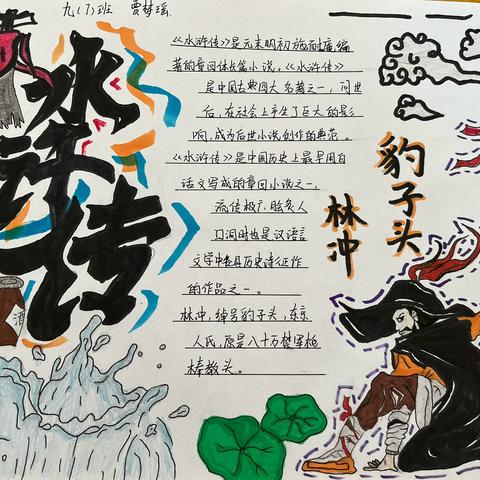 九(7)班 贾梦瑶
水浒传
《水浒传》是元末明初施耐庵编
著的章回体长篇小说。《水浒传》
是中国古典四大名著之一，问世
后，在社会上产生了巨大的影
响，成为后世小说创作的典范。
《水浒传》是中国历史上最早用白
话文写成的章回小说之一，
流传极广，脍炙人
口同时也是汉语言
文学中具历史诗征作
的作品之一。
林冲，绰号豹子头，东京
人氏，原是八十万禁军枪
棒教头。
豹子头
林冲
酒